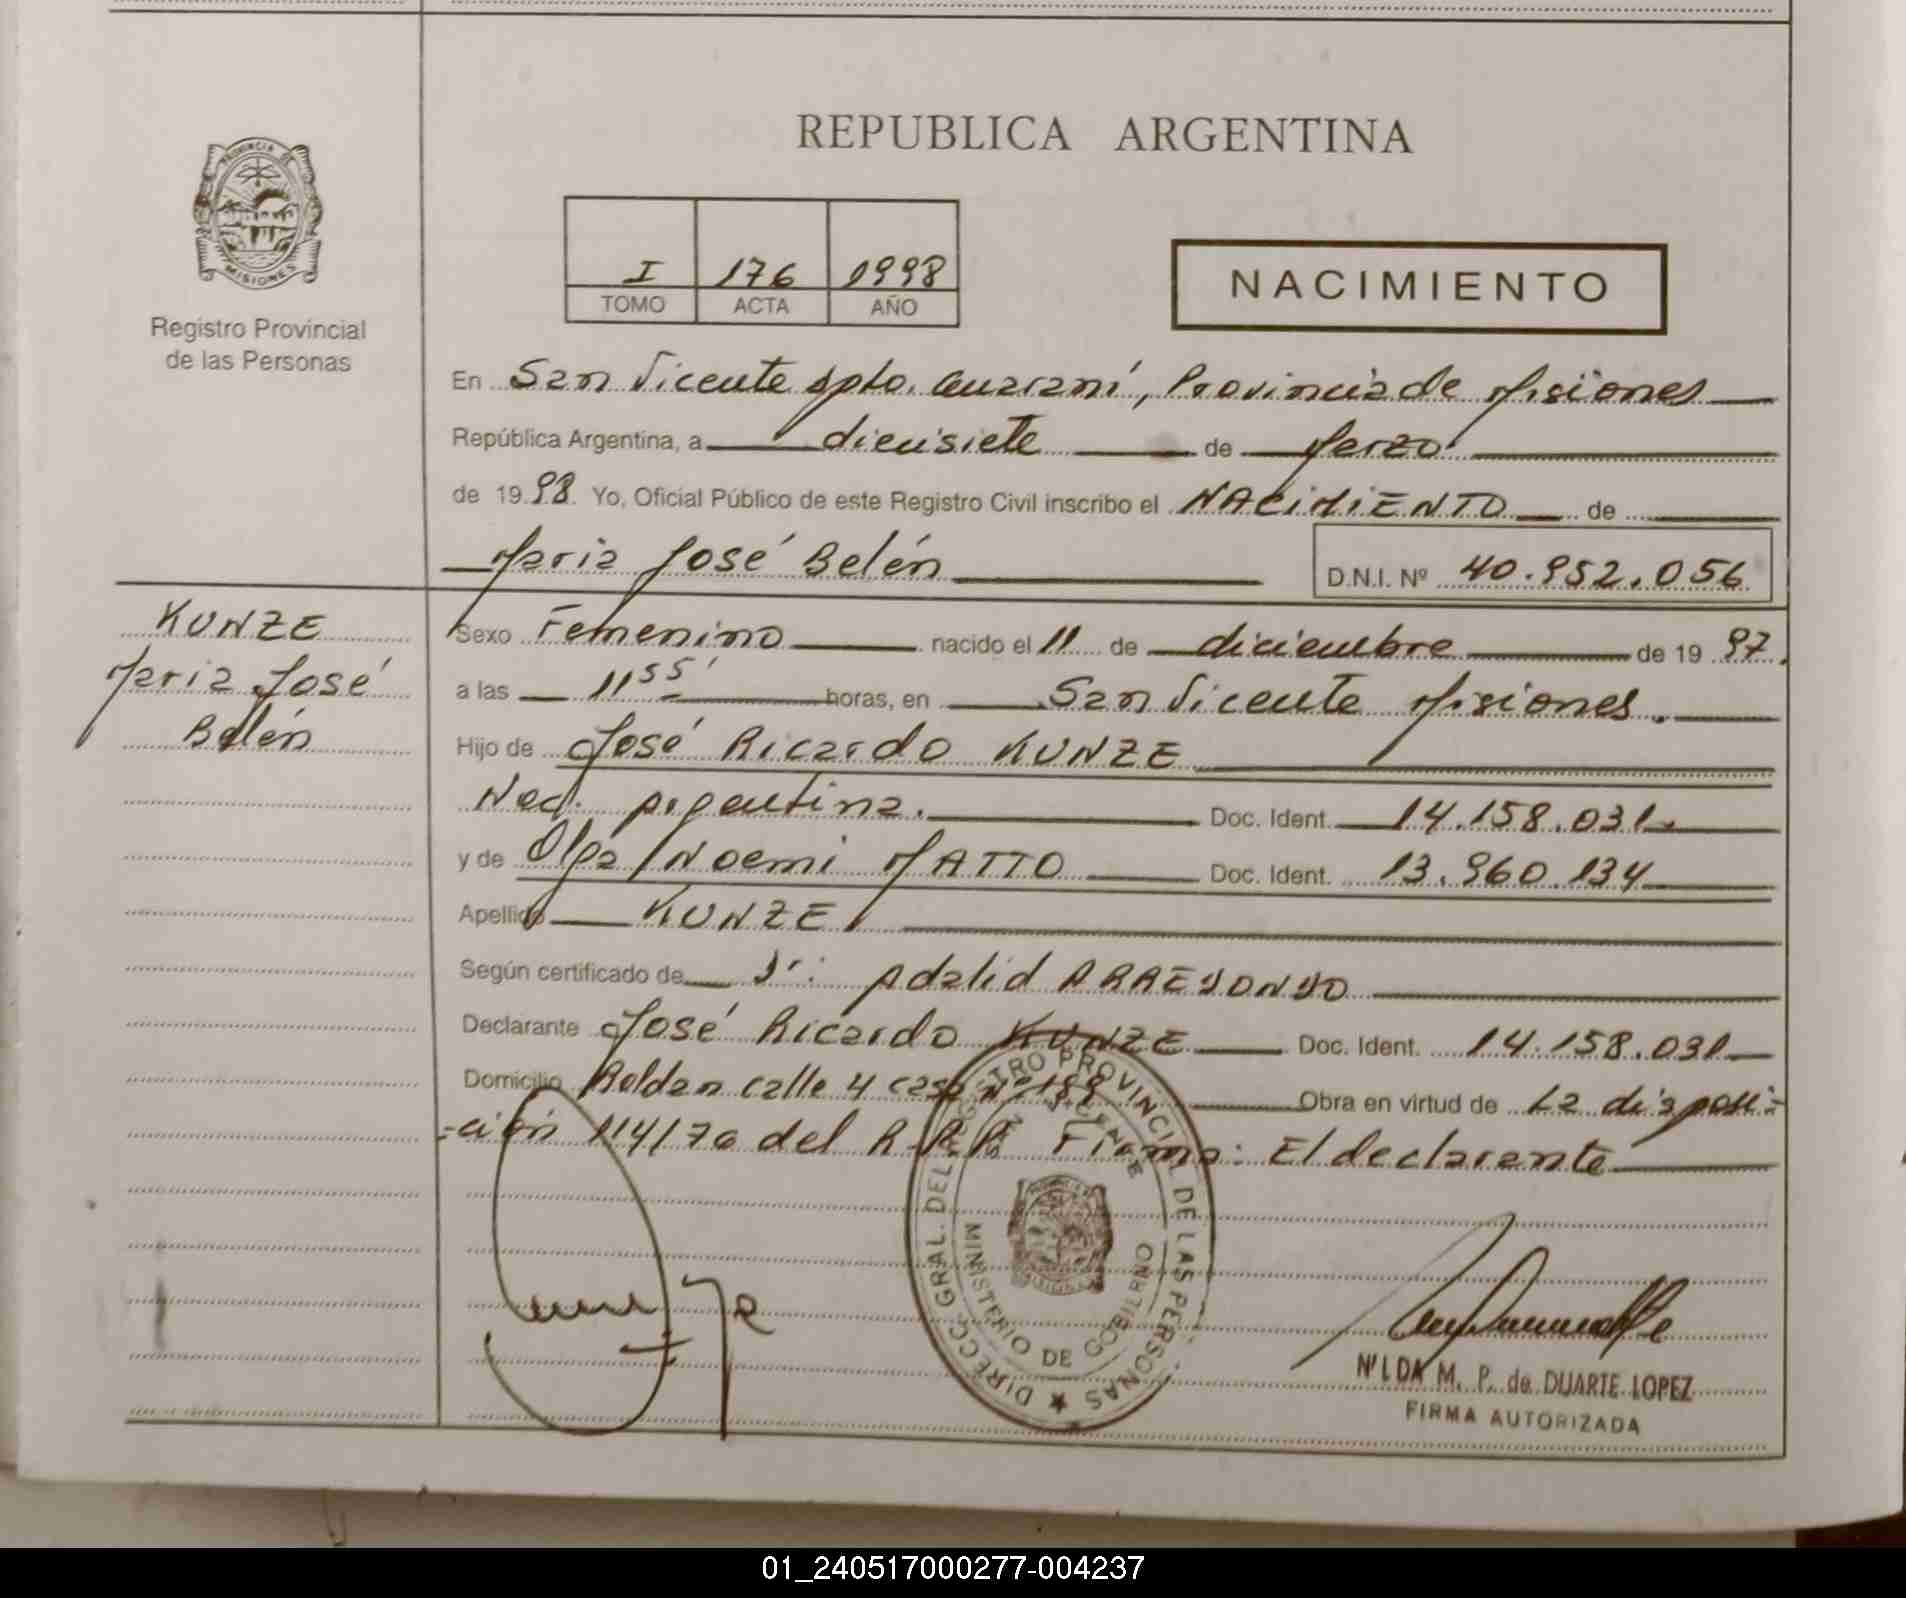 REPUBLICA ARGENTINA
PROVINCIA DE
MISIONES
Registro Provincial
de las Personas
I 176 1998
TOMO ACTA AÑO
NACIMIENTO
En San Vicente Dpto. Guaraní, Provincia de Misiones
República Argentina, a diecisiete de Marzo
de 1998. Yo, Oficial Público de este Registro Civil inscribo el NACIMIENTO de
Maria José Belén D.N.I. Nº 40.952.056
KUNZE
Maria José
Belén
Sexo Femenino nacido el 11 de diciembre de 1997.
a las 11 55' horas, en San Vicente Misiones.
Hijo de José Ricardo KUNZE
Nac. Argentina. Doc. Ident. 14.158.031.
y de Olga Noemi MATTO Doc. Ident. 13.960.134
Apellido KUNZE
Según certificado de Dr: Adalid ARREDONDO
Declarante José Ricardo KUNZE Doc. Ident. 14.158.031
Domicilio Roldan calle 4 casa Nº 189 Obra en virtud de La disposi-
-ción 114/76 del R.P.P. Firma: El declarante
DIRECC. GRAL. DEL REGISTRO PROVINCIAL DE LAS PERSONAS
SAN VICENTE
MINISTERIO DE GOBIERNO
NILDA M. P. de DUARTE LOPEZ
FIRMA AUTORIZADA
01_240517000277-004237